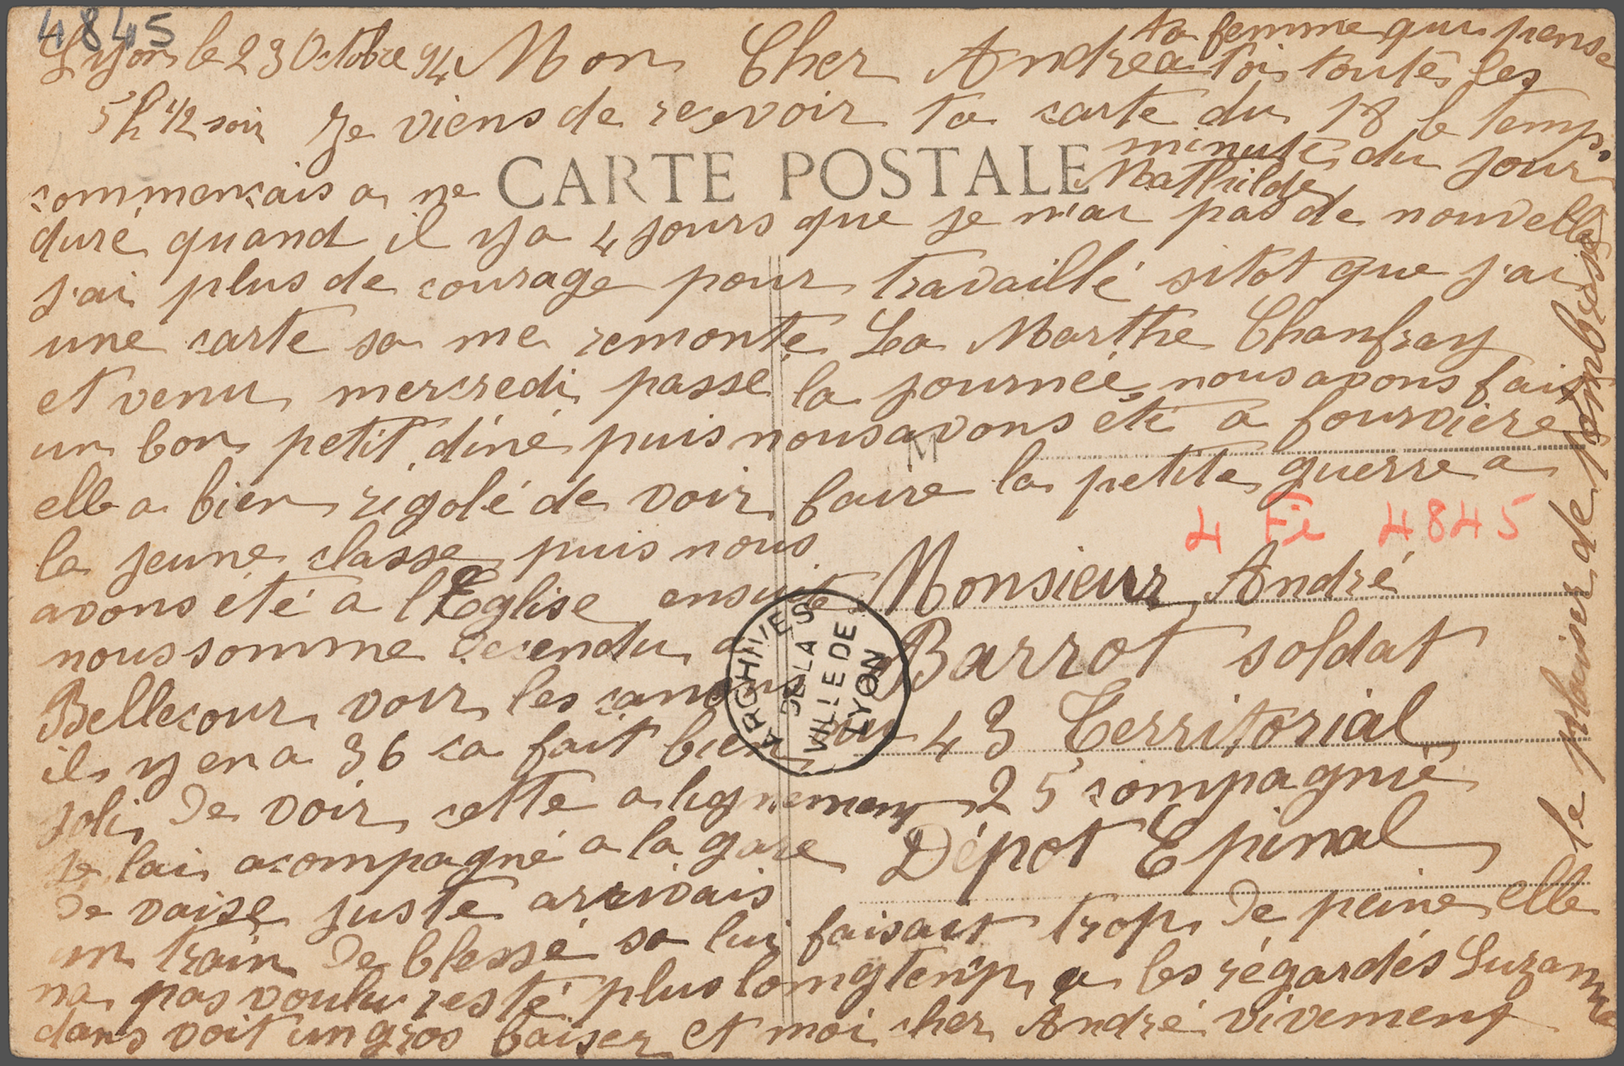 4845
Lyon le 23 Octobre 94 Mon Cher André
5h 1/2 soir Je viens de recevoir ta carte du 18 le temps
commencais a me
CARTE POSTALE
duré quand il y a 4 jours que je n'ai pas de nouvelle
j'ai plus de courage pour travaillé sitot que j'ai
une carte sa me remonte La Marthe Chanfray
et venu mercredi passé la journée nous avons fait
un bon petit diné puis nous avons été a fourvière
elle a bien rigolé de voir faire la petite guerre a
la jeune classe puis nous
avons été a l'Eglise ensuite
nous somme decendu a
Bellecour voir les canons
il y en a 36 ca fait bien
joli de voir cette alignement
je lai acompagné a la gare
de vaise juste arrivais
un train de blessé sa lui faisait trop de peine elle
na pas voulu resté plus longtemp a les régardés Suzanne
dans voit un gros baiser et moi cher André vivement
le plaisir de
ta femme qui pense
a toi toutes les
minutes du jour
Mathilde
M
4 Fi 4845
Monsieur André
Barrot soldat
au 43 Territorial
25 compagnie
Dépot Epinal
ARCHIVES
DE LA
VILLE DE
LYON